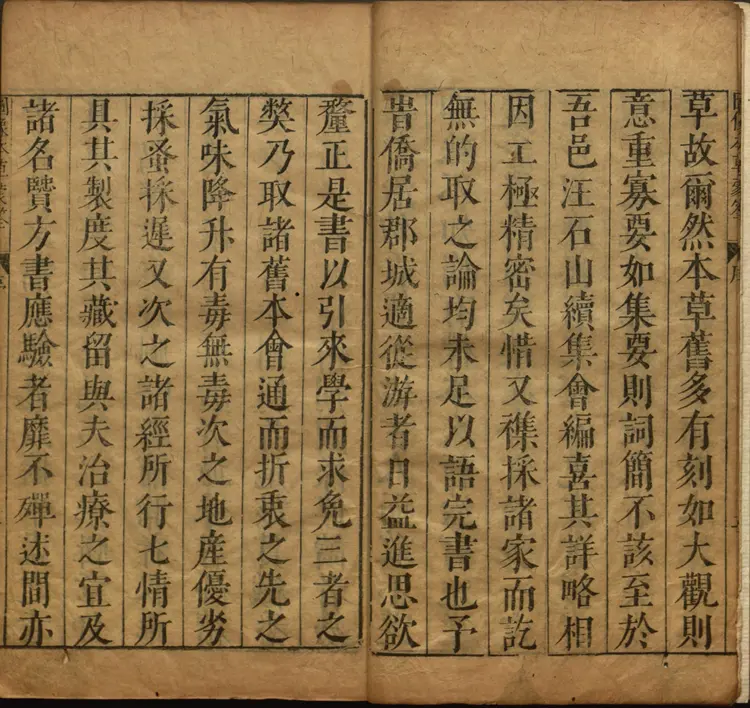 草故爾然本草舊多有刻如大觀則
意重寡要如集要則詞簡不該至於
吾邑汪石山續集會編喜其詳略相
因工極精密矣惜又襍採諸家而訖
無的取之論均未足以語完書也予
昔僑居郡城適從游者日益進思欲
釐正是書以引來學而求免三者之
獘乃取諸舊本會通而折衷之先之
氣味降升有毒無毒次之地產優劣
採蚤採遲又次之諸經所行七情所
具其製度其藏留與夫治療之宜及
諸名贒方書應驗者靡不殫述間亦